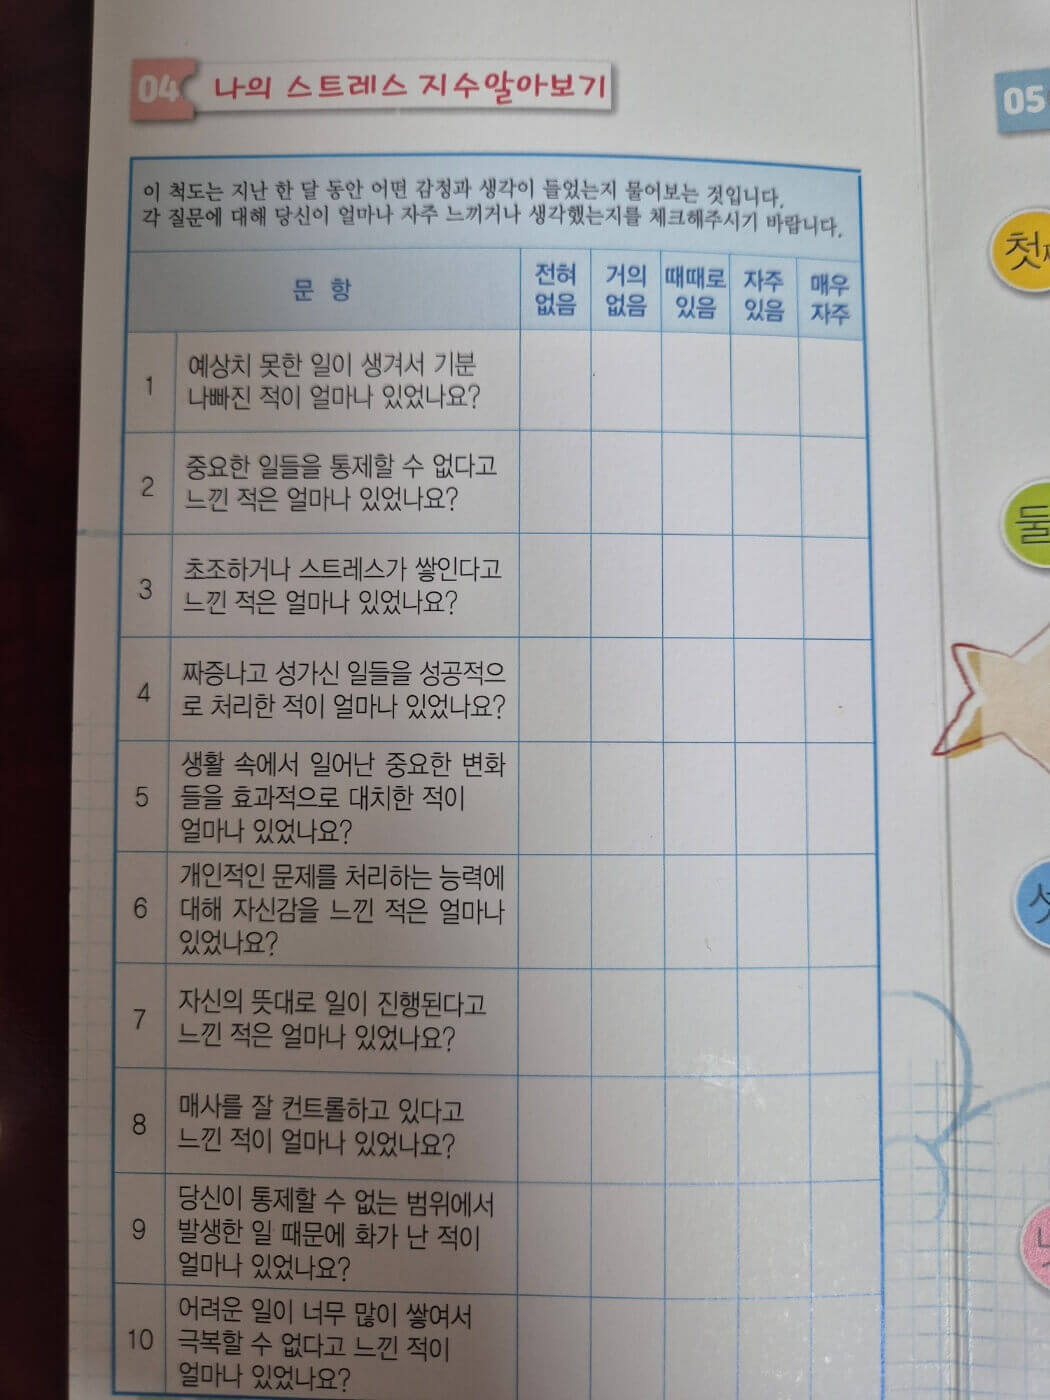 04 나의 스트레스 지수알아보기
이 척도는 지난 한 달 동안 어떤 감정과 생각이 들었는지 물어보는 것입니다.
각 질문에 대해 당신이 얼마나 자주 느끼거나 생각했는지를 체크해주시기 바랍니다.
문 항
전혀
없음
거의
없음
때때로
있음
자주
있음
매우
자주
1
예상치 못한 일이 생겨서 기분
나빠진 적이 얼마나 있었나요?
2
중요한 일들을 통제할 수 없다고
느낀 적은 얼마나 있었나요?
3
초조하거나 스트레스가 쌓인다고
느낀 적은 얼마나 있었나요?
4
짜증나고 성가신 일들을 성공적으
로 처리한 적이 얼마나 있었나요?
5
생활 속에서 일어난 중요한 변화
들을 효과적으로 대치한 적이
얼마나 있었나요?
6
개인적인 문제를 처리하는 능력에
대해 자신감을 느낀 적은 얼마나
있었나요?
7
자신의 뜻대로 일이 진행된다고
느낀 적은 얼마나 있었나요?
8
매사를 잘 컨트롤하고 있다고
느낀 적이 얼마나 있었나요?
9
당신이 통제할 수 없는 범위에서
발생한 일 때문에 화가 난 적이
얼마나 있었나요?
10
어려운 일이 너무 많이 쌓여서
극복할 수 없다고 느낀 적이
얼마나 있었나요?
05